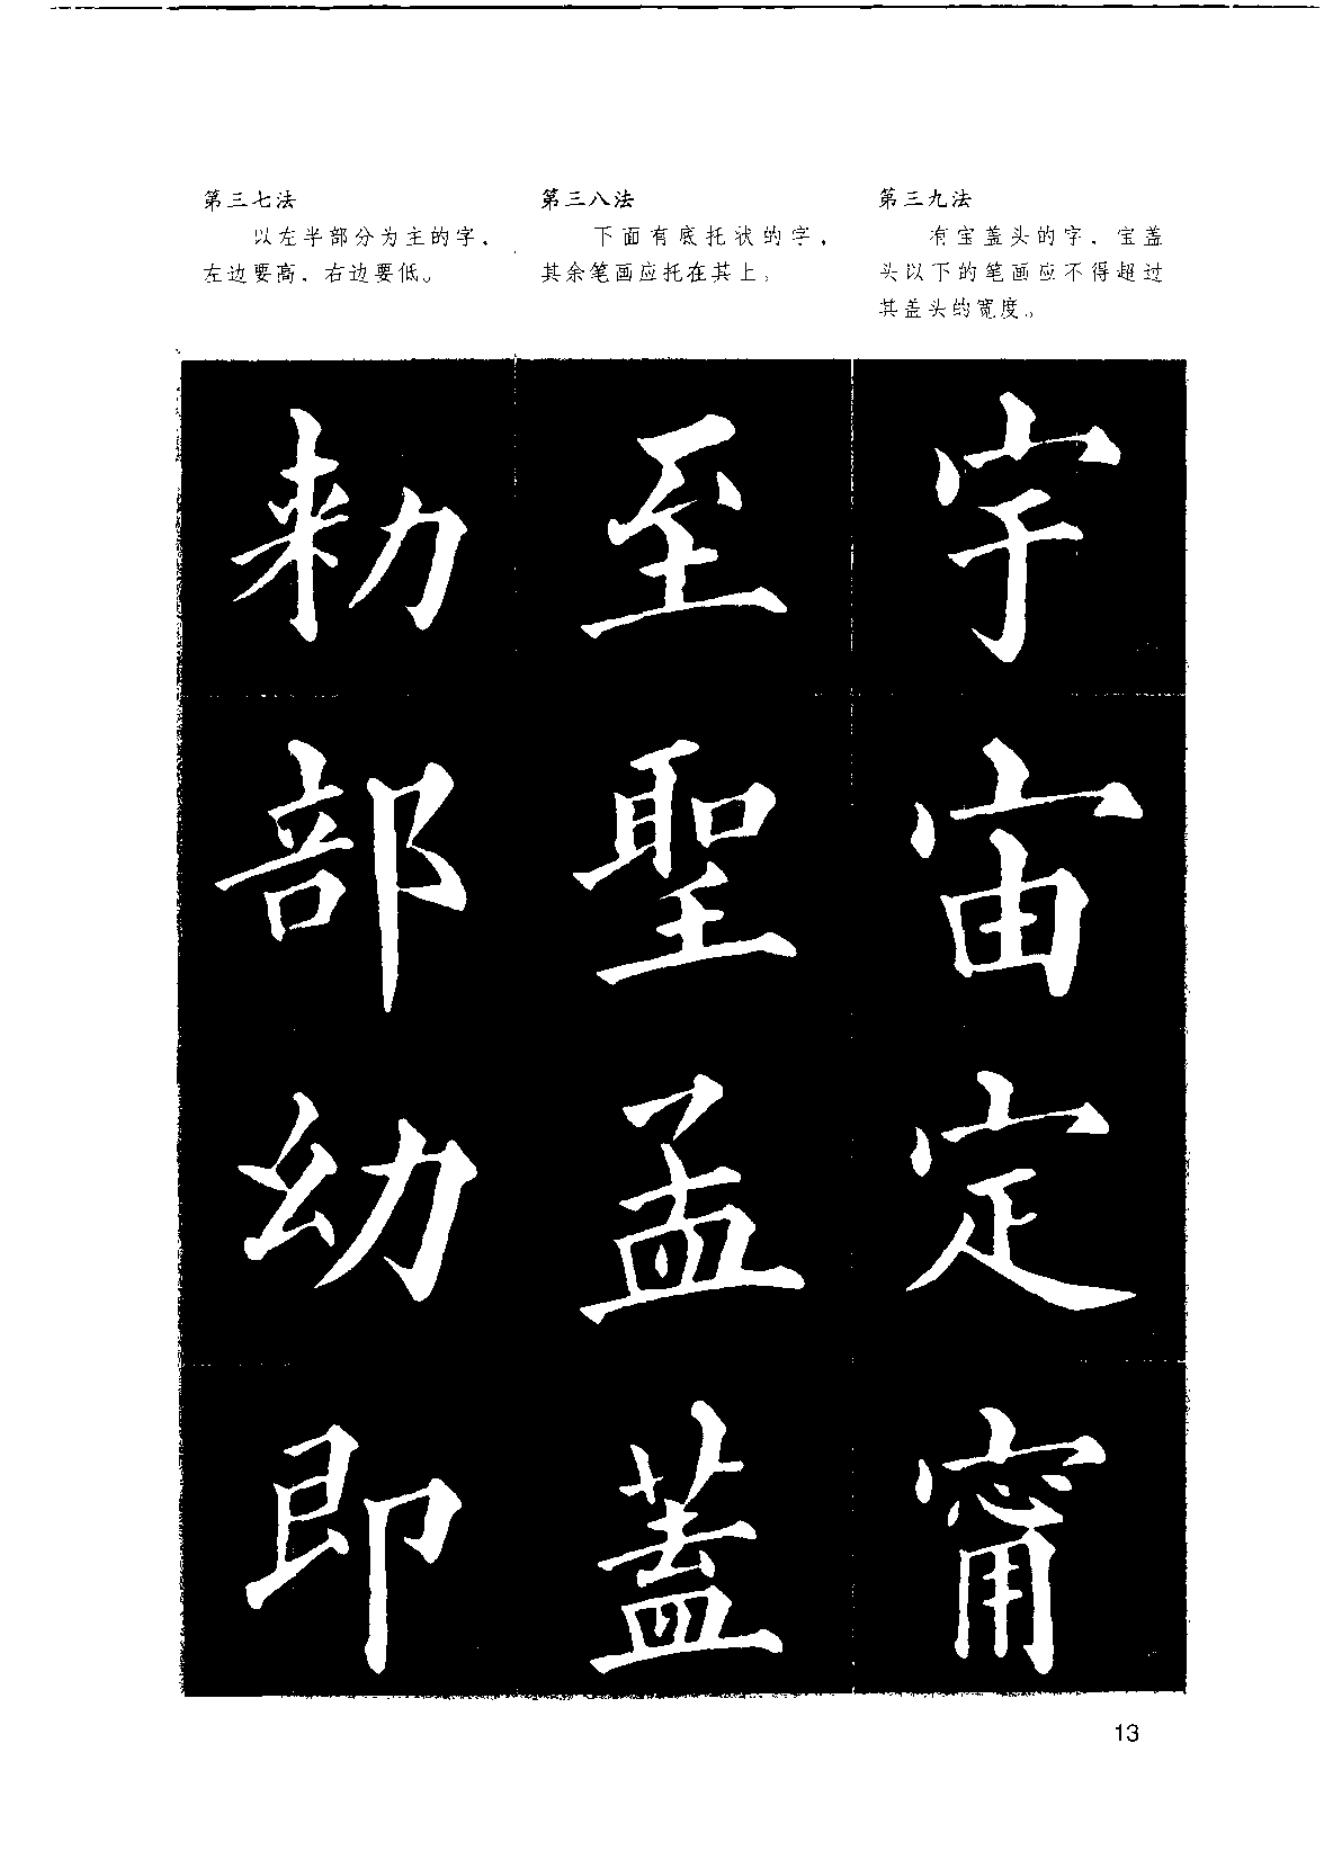 第三七法
以左半部分为主的字，
左边要高，右边要低。
第三八法
下面有底托状的字，
其余笔画应托在其上。
第三九法
有宝盖头的字，宝盖
头以下的笔画应不得超过
其盖头的宽度。
勑
部
幼
即
至
聖
孟
蓋
宇
宙
定
甯
13